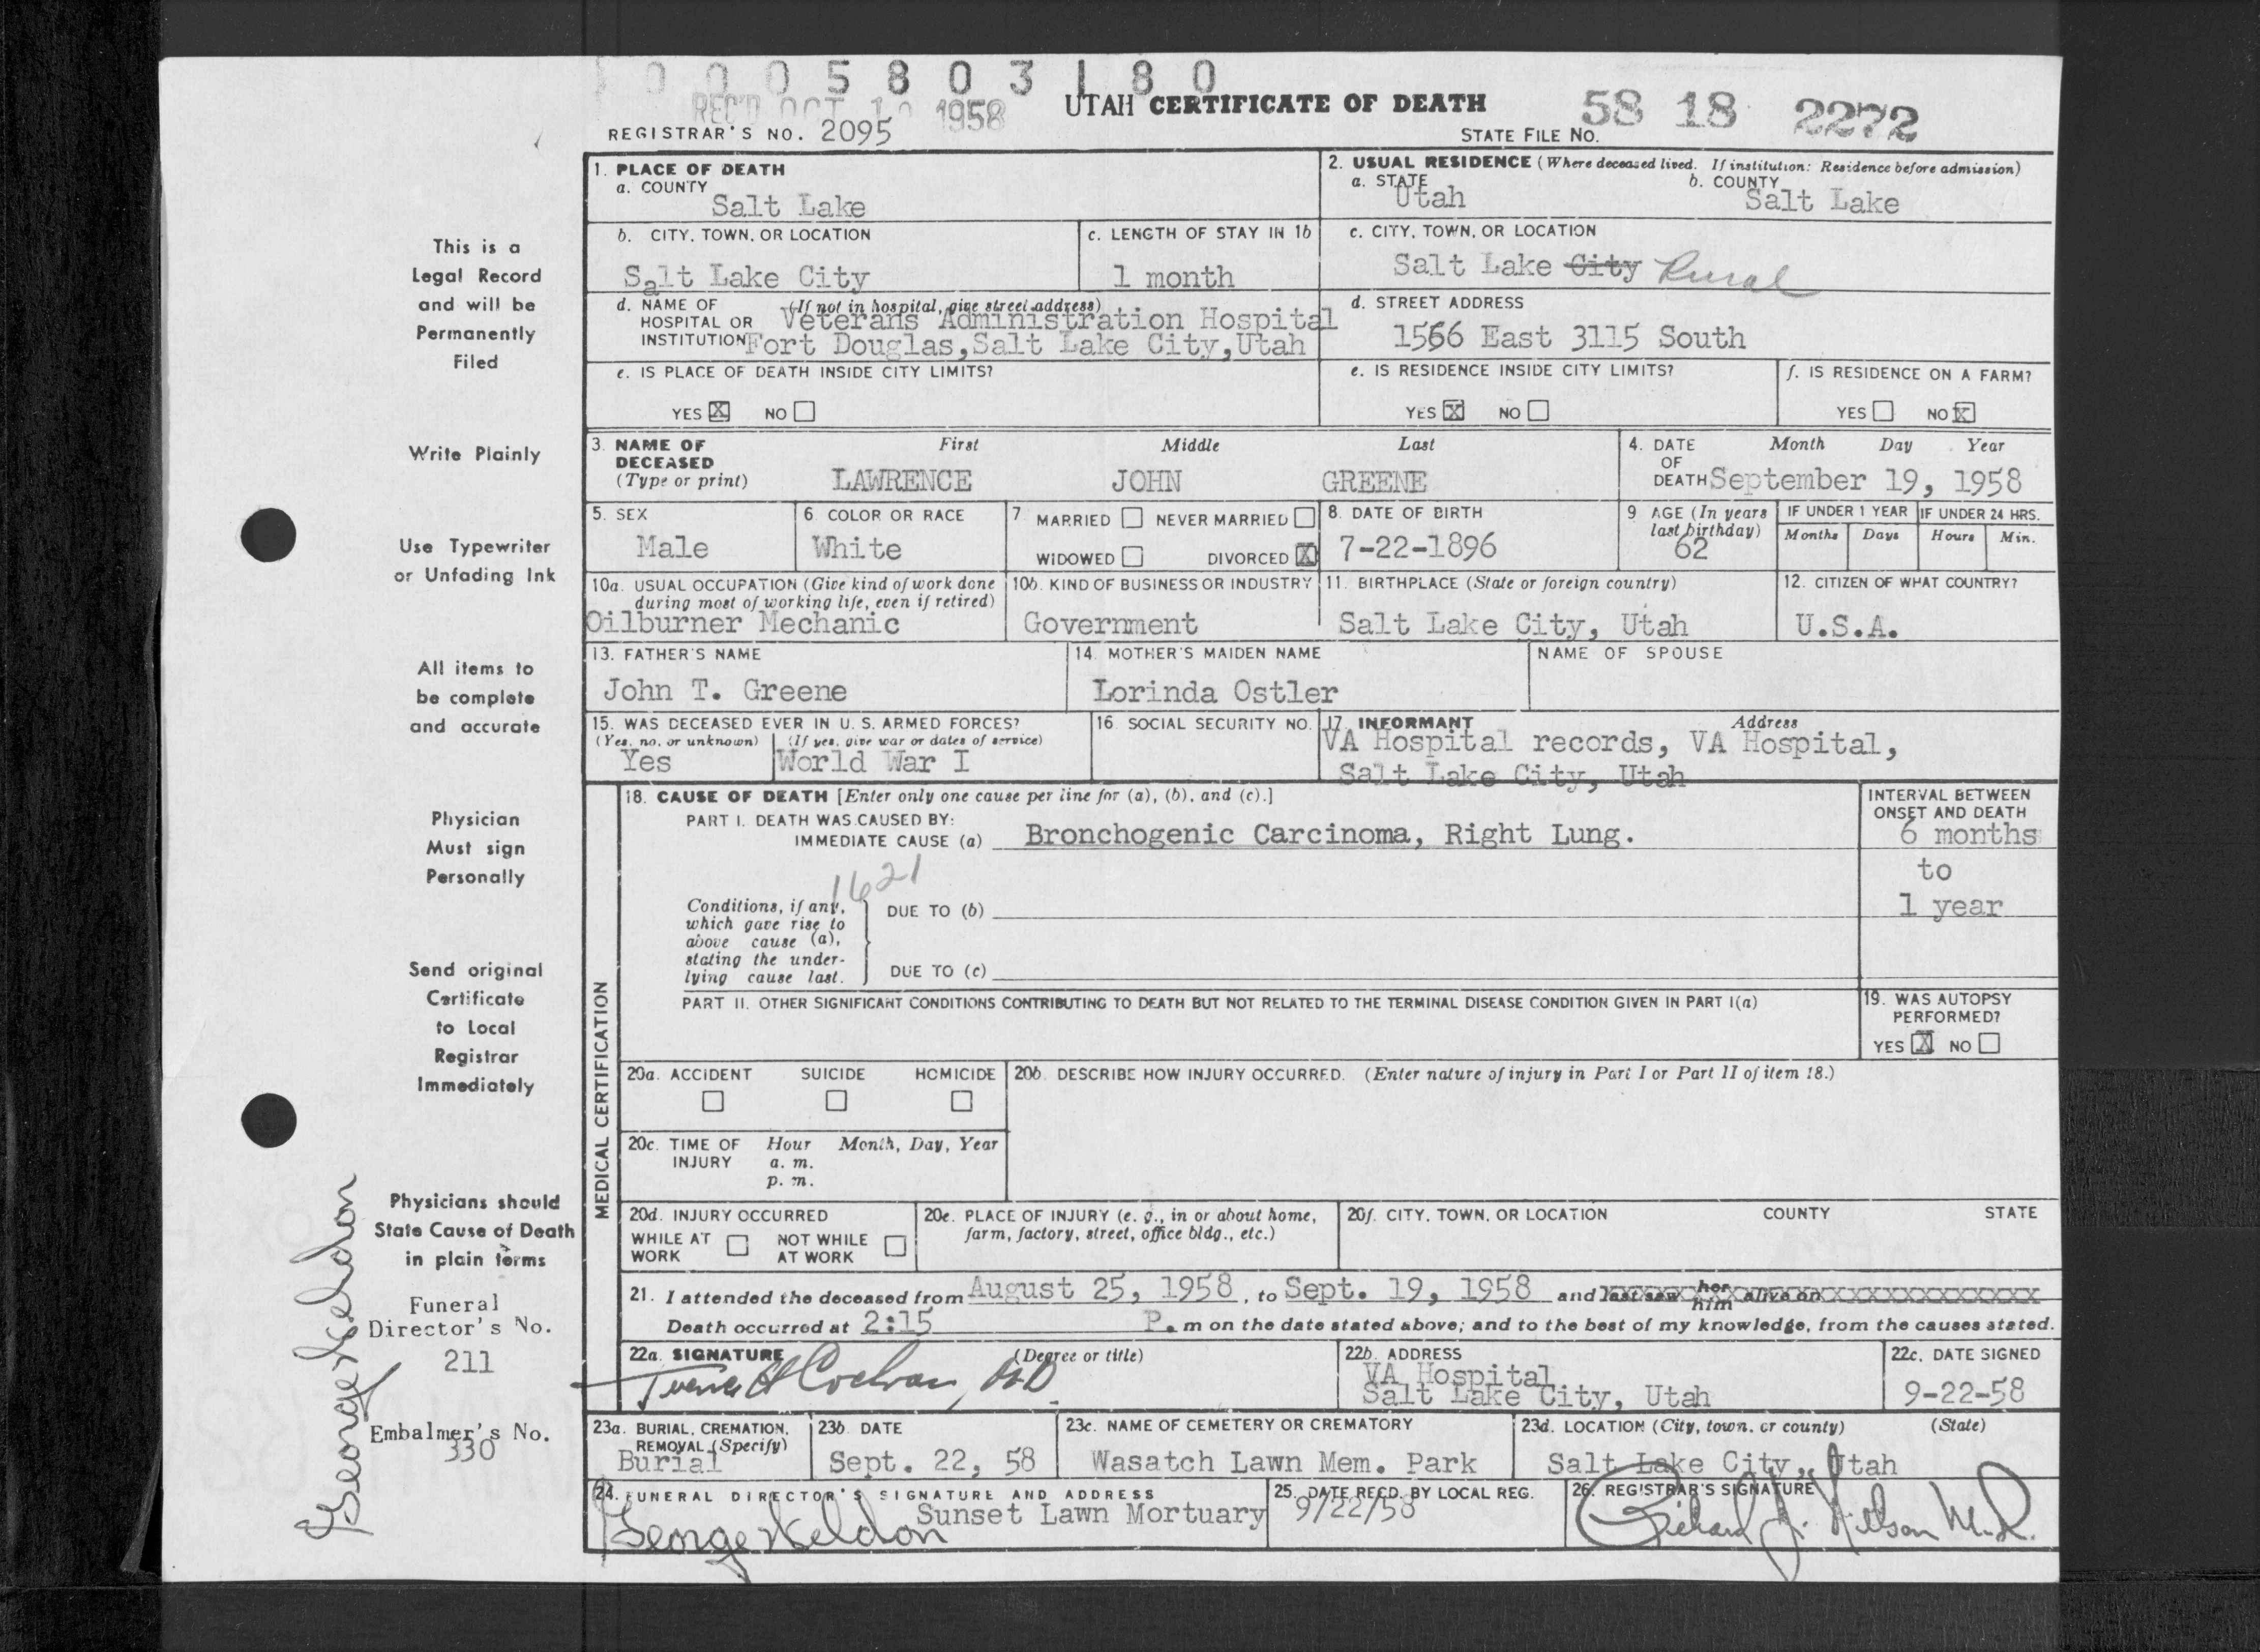 0 0 0 5 8 0 3 1 8 0
REC'D OCT 10 1958
UTAH CERTIFICATE OF DEATH
58 18 2272
REGISTRAR'S NO. 2095
STATE FILE NO.
1. PLACE OF DEATH
a. COUNTY
Salt Lake
2. USUAL RESIDENCE (Where deceased lived. If institution: Residence before admission)
a. STATE Utah
b. COUNTY Salt Lake
b. CITY, TOWN, OR LOCATION
Salt Lake City
c. LENGTH OF STAY IN 1b
1 month
c. CITY, TOWN, OR LOCATION
Salt Lake City Rural
d. NAME OF HOSPITAL OR INSTITUTION (If not in hospital, give street address)
Veterans Administration Hospital
Fort Douglas, Salt Lake City, Utah
d. STREET ADDRESS
1566 East 3115 South
e. IS PLACE OF DEATH INSIDE CITY LIMITS?
YES X NO
e. IS RESIDENCE INSIDE CITY LIMITS?
YES X NO
f. IS RESIDENCE ON A FARM?
YES NO X
3. NAME OF DECEASED (Type or print)
First Middle Last
LAWRENCE JOHN GREENE
4. DATE OF DEATH Month Day Year
September 19, 1958
5. SEX
Male
6. COLOR OR RACE
White
7. MARRIED NEVER MARRIED
WIDOWED DIVORCED X
8. DATE OF BIRTH
7-22-1896
9. AGE (In years last birthday)
62
IF UNDER 1 YEAR
Months Days
IF UNDER 24 HRS.
Hours Min.
10a. USUAL OCCUPATION (Give kind of work done during most of working life, even if retired)
Oilburner Mechanic
10b. KIND OF BUSINESS OR INDUSTRY
Government
11. BIRTHPLACE (State or foreign country)
Salt Lake City, Utah
12. CITIZEN OF WHAT COUNTRY?
U.S.A.
13. FATHER'S NAME
John T. Greene
14. MOTHER'S MAIDEN NAME
Lorinda Ostler
NAME OF SPOUSE
15. WAS DECEASED EVER IN U. S. ARMED FORCES?
(Yes, no, or unknown) (If yes, give war or dates of service)
Yes World War I
16. SOCIAL SECURITY NO.
17. INFORMANT Address
VA Hospital records, VA Hospital,
Salt Lake City, Utah
MEDICAL CERTIFICATION
18. CAUSE OF DEATH [Enter only one cause per line for (a), (b), and (c).]
PART I. DEATH WAS CAUSED BY:
IMMEDIATE CAUSE (a) Bronchogenic Carcinoma, Right Lung.
INTERVAL BETWEEN ONSET AND DEATH
6 months
to
1 year
1621
Conditions, if any, which gave rise to above cause (a), stating the underlying cause last.
DUE TO (b)
DUE TO (c)
PART II. OTHER SIGNIFICANT CONDITIONS CONTRIBUTING TO DEATH BUT NOT RELATED TO THE TERMINAL DISEASE CONDITION GIVEN IN PART I(a)
19. WAS AUTOPSY PERFORMED?
YES X NO
20a. ACCIDENT SUICIDE HOMICIDE
20b. DESCRIBE HOW INJURY OCCURRED. (Enter nature of injury in Part I or Part II of item 18.)
20c. TIME OF INJURY Hour Month, Day, Year
a. m.
p. m.
20d. INJURY OCCURRED
WHILE AT WORK NOT WHILE AT WORK
20e. PLACE OF INJURY (e. g., in or about home, farm, factory, street, office bldg., etc.)
20f. CITY, TOWN, OR LOCATION COUNTY STATE
21. I attended the deceased from August 25, 1958, to Sept. 19, 1958 and last saw her him alive on
Death occurred at 2:15 P. m on the date stated above; and to the best of my knowledge, from the causes stated.
22a. SIGNATURE (Degree or title)
Cochran MD
22b. ADDRESS
VA Hospital
Salt Lake City, Utah
22c. DATE SIGNED
9-22-58
23a. BURIAL, CREMATION, REMOVAL (Specify)
Burial
23b. DATE
Sept. 22, 58
23c. NAME OF CEMETERY OR CREMATORY
Wasatch Lawn Mem. Park
23d. LOCATION (City, town, or county) (State)
Salt Lake City, Utah
24. FUNERAL DIRECTOR'S SIGNATURE AND ADDRESS
George Weldon
Sunset Lawn Mortuary
25. DATE RECD. BY LOCAL REG.
9/22/58
26. REGISTRAR'S SIGNATURE
Richard J. Nelson M.D.
This is a
Legal Record
and will be
Permanently
Filed
Write Plainly
Use Typewriter
or Unfading Ink
All items to
be complete
and accurate
Physician
Must sign
Personally
Send original
Certificate
to Local
Registrar
Immediately
Physicians should
State Cause of Death
in plain terms
Funeral
Director's No.
211
Embalmer's No.
330
George Weldon